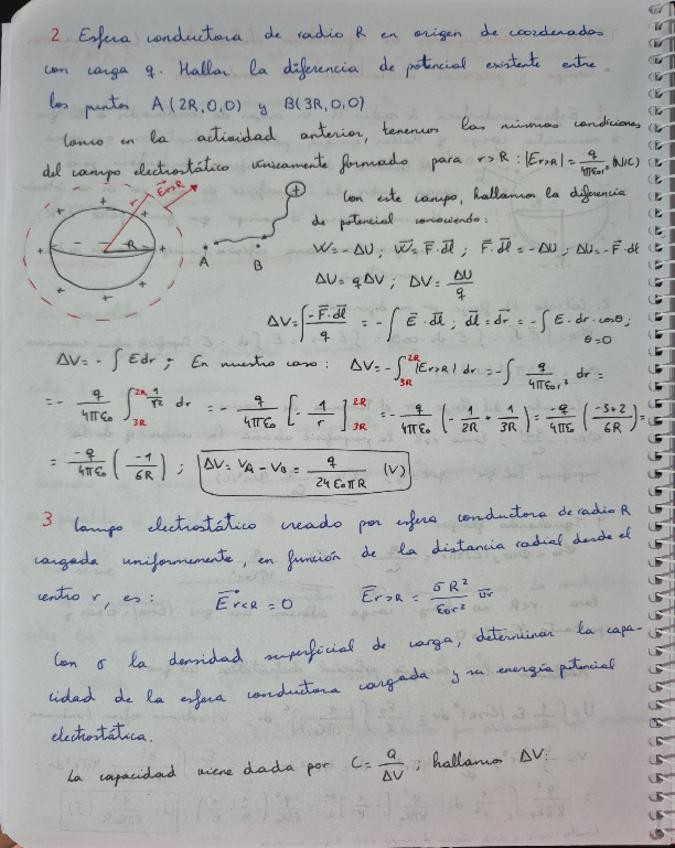 2 Esfera conductora de radio R en origen de coordenadas
con carga q. Hallar la diferencia de potencial existente entre
los puntos A(2R,0,0) y B(3R,0,0)
Como en la actividad anterior, tenemos las mismas condiciones
del campo electrostático únicamente formado para r>R : |Er>R| = q/4πε₀r² (N/C)
Er>R
r
R
A
B
Con este campo, hallamos la diferencia
de potencial conociendo:
W = -ΔU ; W̄ = F̄·dl̄ ; F̄·dl̄ = -ΔU ; ΔU = -F̄·dl
ΔU = qΔV ; ΔV = ΔU/q
ΔV = ∫ -F̄·dl̄/q = -∫ Ē·dl̄ ; dl̄ = dr̄ = -∫ E·dr·cosθ ;
θ=0
ΔV = -∫ Edr ; En nuestro caso : ΔV = -∫_3R^2R |Er>R| dr = -∫ q/4πε₀r² dr =
= - q/4πε₀ ∫_3R^2R 1/r² dr = - q/4πε₀ [- 1/r]_3R^2R = - q/4πε₀ (- 1/2R + 1/3R) = -q/4πε (-3+2/6R) =
= -q/4πε₀ (-1/6R) ; ΔV = VA - VB = q/24ε₀πR (V)
3 Campo electrostático creado por esfera conductora de radio R
cargada uniformemente, en función de la distancia radial desde el
centro r, es: Ēr<R = 0 Ēr>R = σR²/ε₀r² ūr
Con σ la densidad superficial de carga, determinar la capa-
cidad de la esfera conductora cargada y su energía potencial
electrostática.
La capacidad viene dada por C = Q/ΔV ; hallamos ΔV: